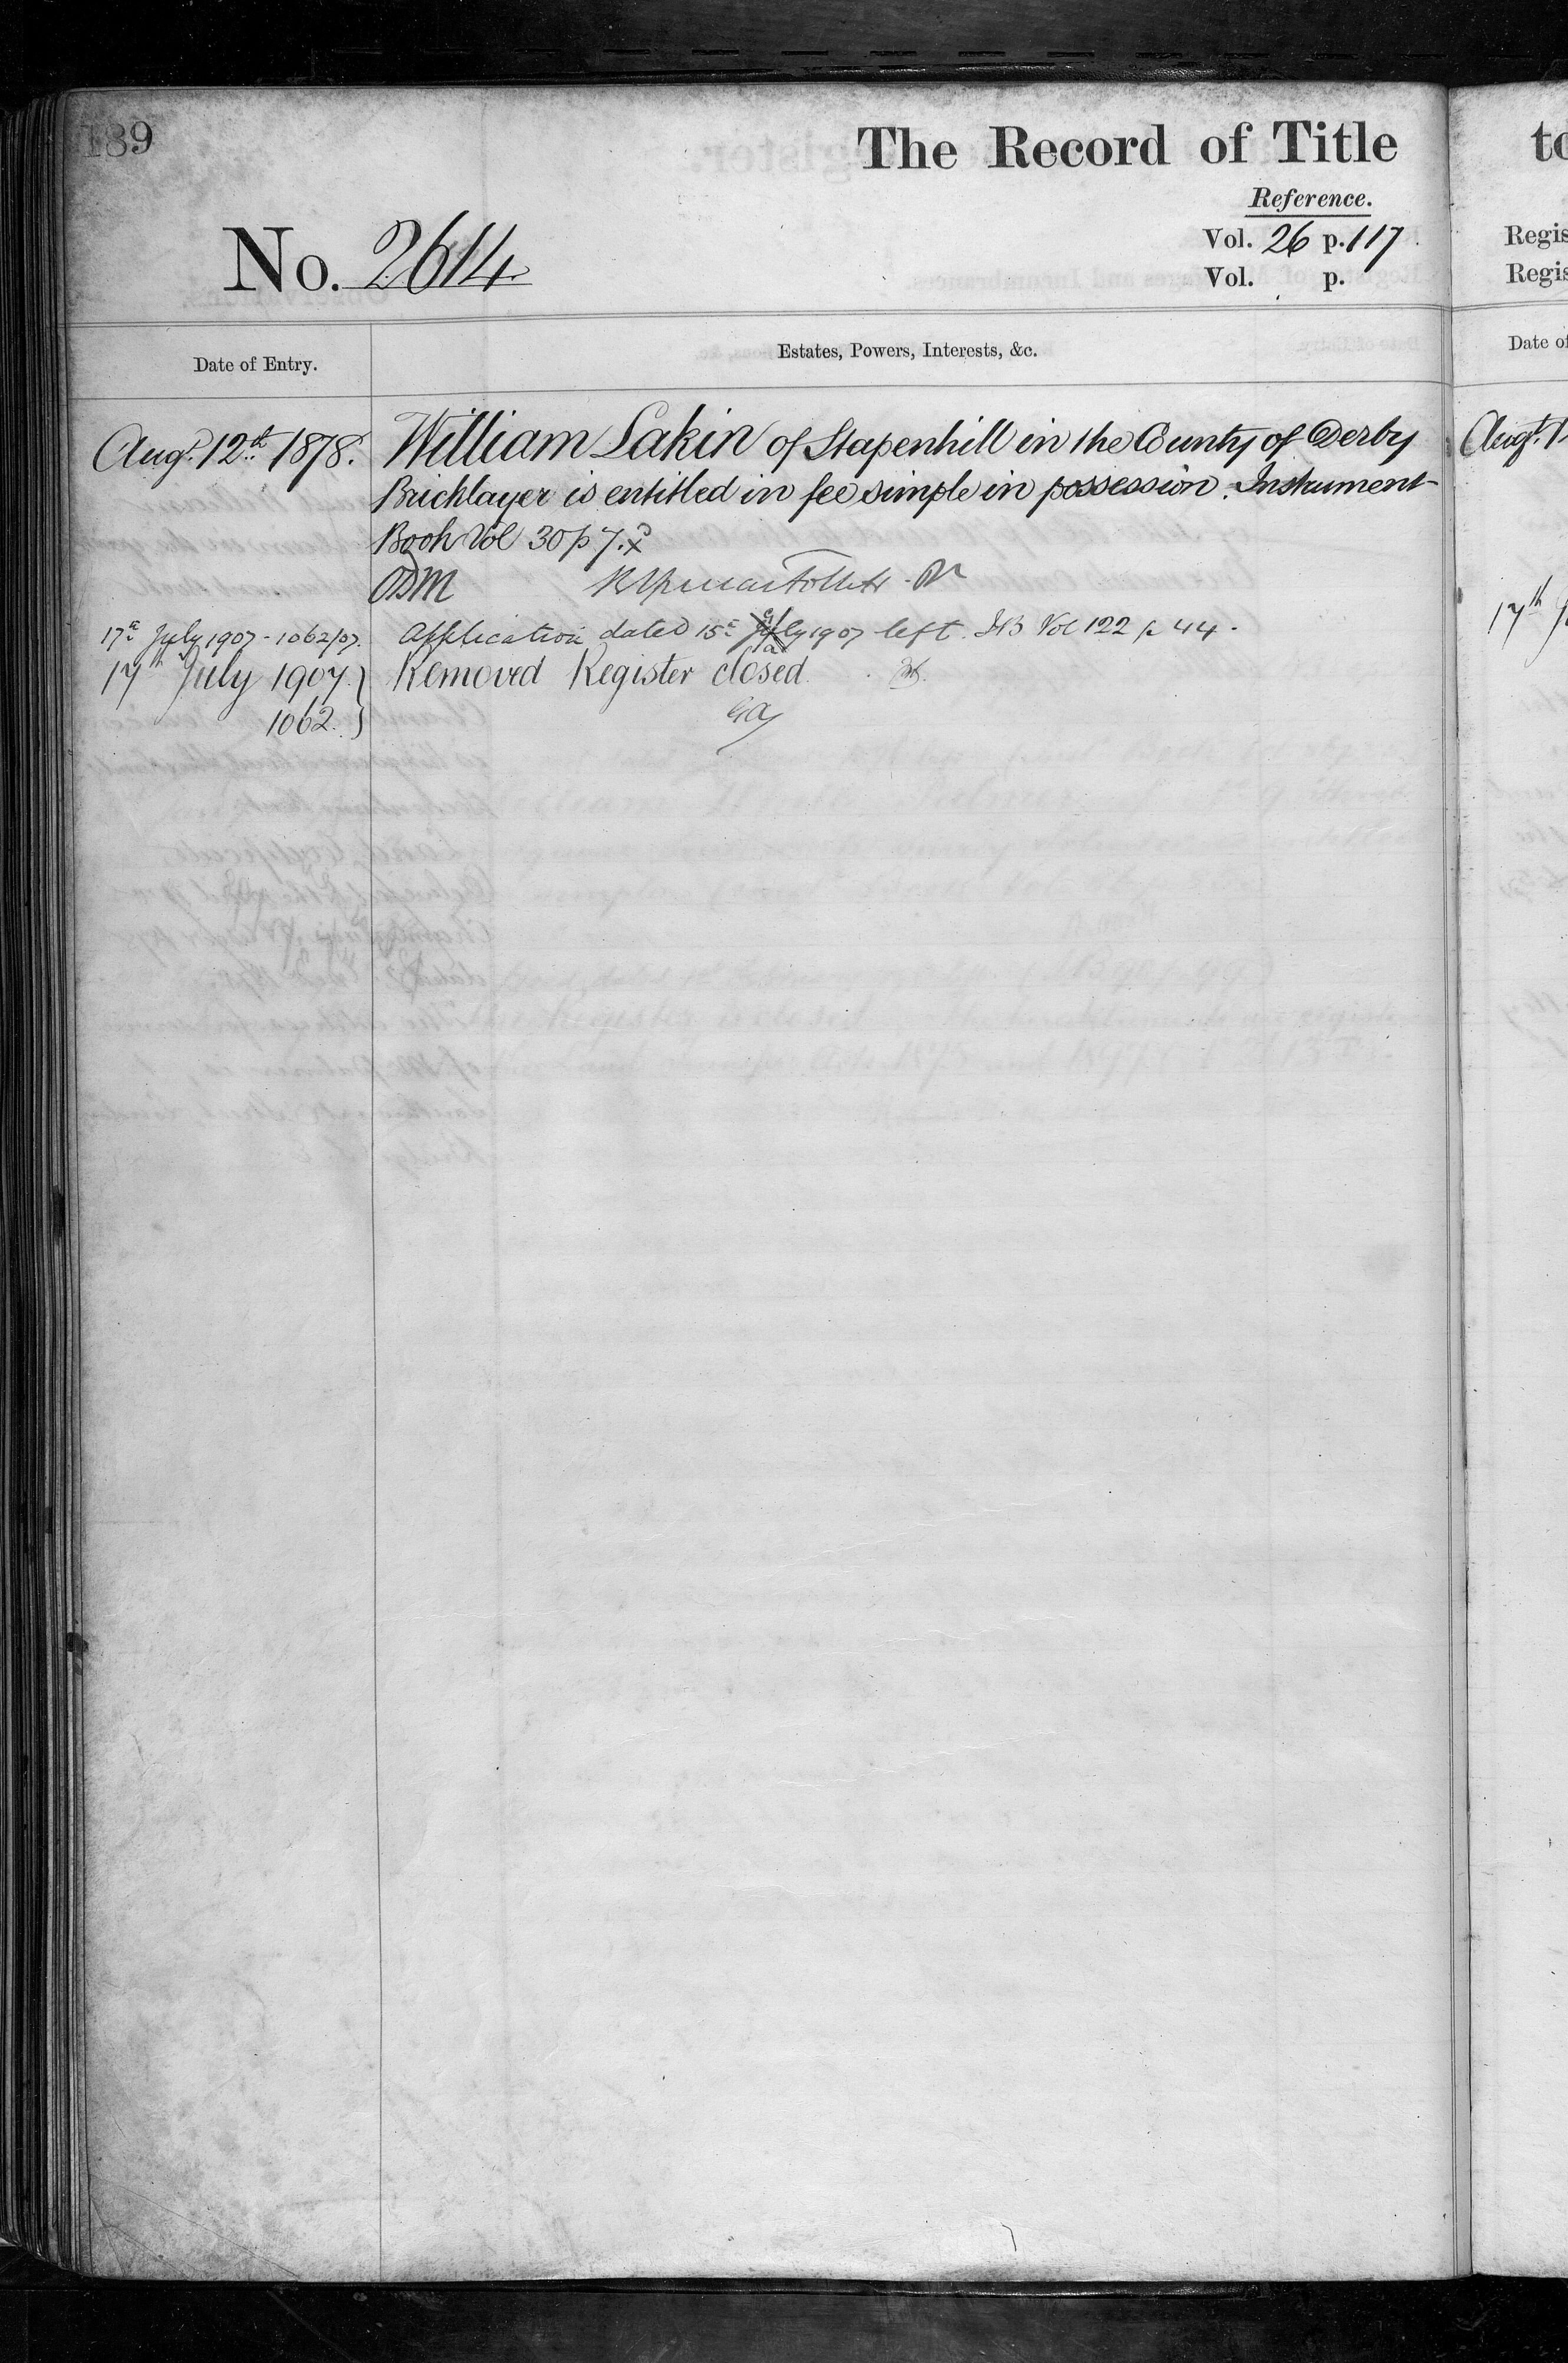 189
The Record of Title
Reference.
No. 2614
Vol. 26 p. 117
Vol. p.
Date of Entry.
Estates, Powers, Interests, &c.
Augt. 12th 1878.
William Lakin of Stapenhill in the County of Derby
Bricklayer is entitled in fee simple in possession. Instrument
Book Vol 30 p 7.
17th July 1907 - 1062/07.
Application dated 15th July 1907 left. IB Vol 122 p 44.
17th July 1907 }
1062. }
Removed Register closed.
to
Regis
Regis
Date of
Augt. 1
17th J